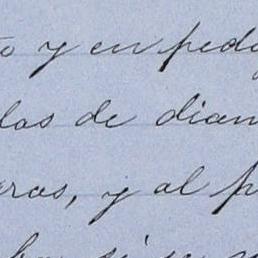 to y en peda
las de diam
eras, y al p